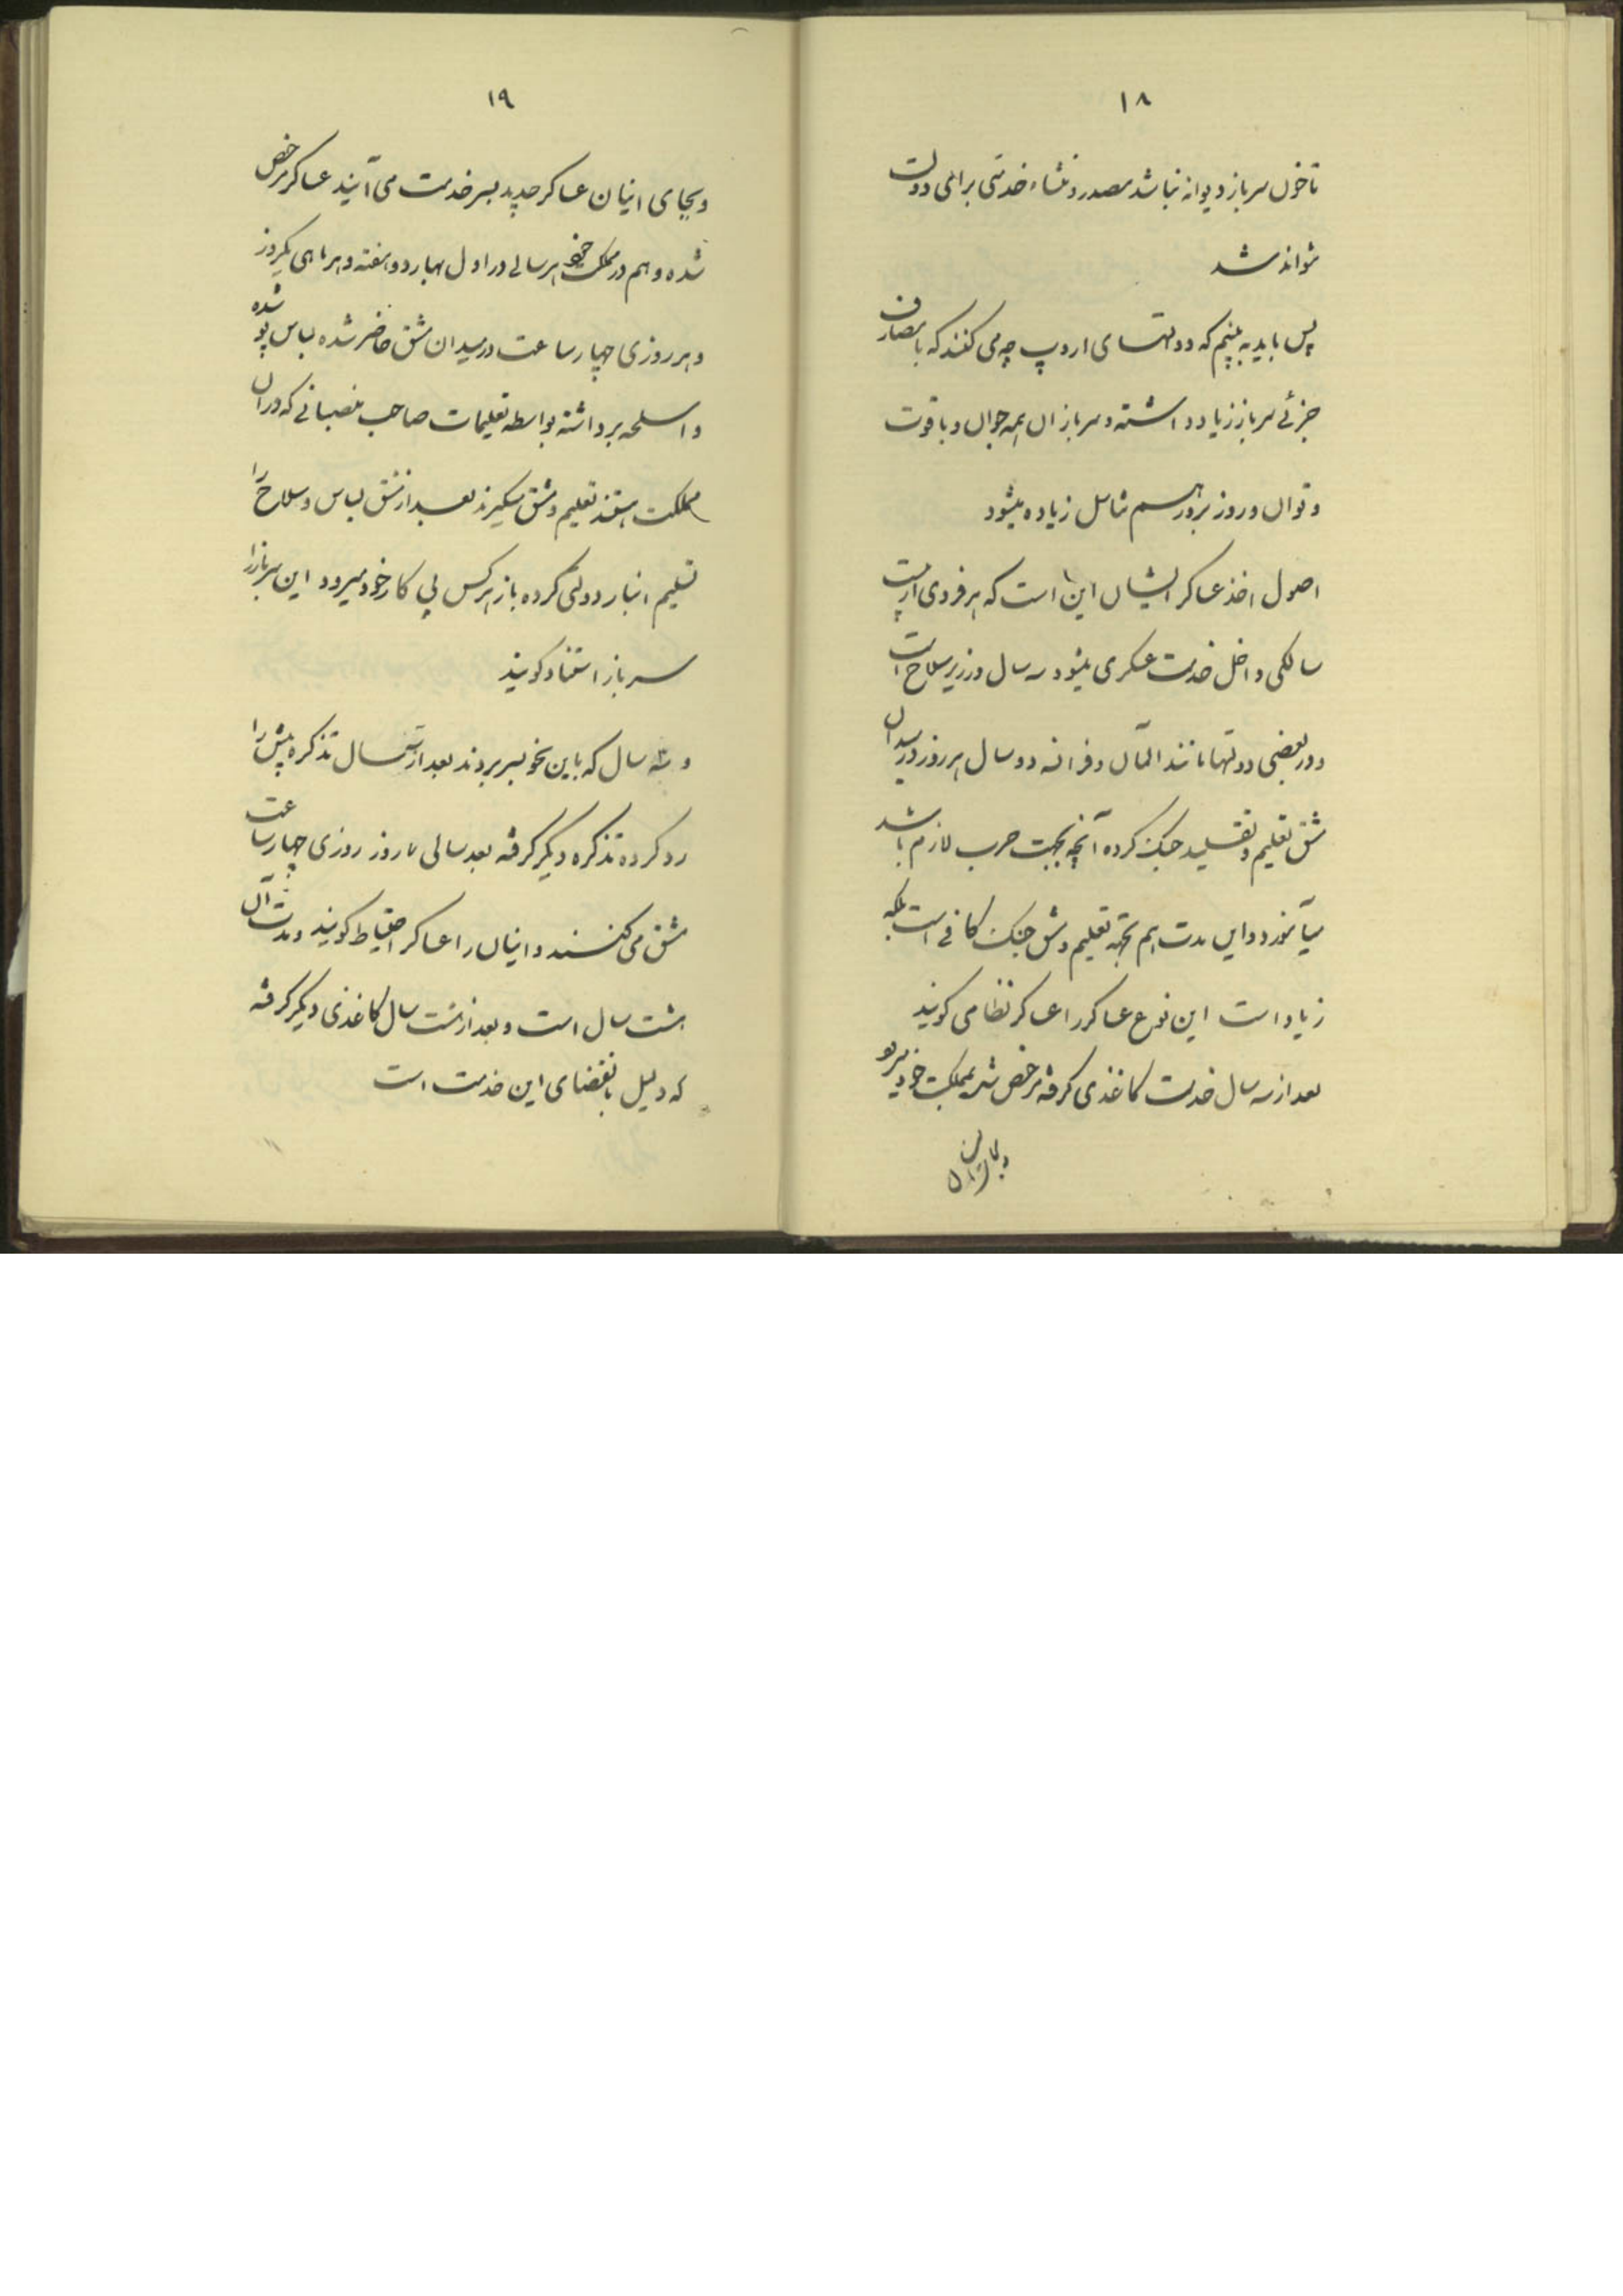 ۱۸
تا خون سرباز دیوانه نباشد مصدر و منشاء خدمتی برای دولت
نتواند شد
پس باید به بینیم که دولتهای اروپ چه می کنند که با مصارف
جزئی سرباز زیاد داشته و سربازان همه جوان و با قوت
و توان و روز بروز هم شامل زیاده میشود
اصول اخذ عساکر ایشان این است که هر فردی از بیست
سالگی داخل خدمت عسکری میشود سه سال در زیر سلاح است
و در بعضی دولتها مانند المآن و فرانسه دو سال هر روز در میدان
مشق تعلیم و تقلید جنک کرده آنچه بجهت حرب لازم باشد
میآموزد و این مدت هم بجهة تعلیم و مشق جنک کافی است بلکه
زیاد است این نوع عساکر را عساکر نظامی کویند
بعد از سه سال خدمت کاغذی کرفته مرخص شده بمملکت خود میرود
۱۹
و بجای اینان عساکر جدید بسر خدمت می آیند عساکر مرخص
شده و هم در مملکت خود هر سالی در اول بهار دو هفته و هر ماهی یکروز
و هر روزی چهار ساعت در میدان مشق حاضر شده لباس پوشیده
و اسلحه برداشته بواسطه تعلیمات صاحب منصبانی که در آن
مملکت هستند تعلیم و مشق میکیرند بعد از مشق لباس و سلاح را
تسلیم انبار دولتی کرده باز هر کس پی کار خود میرود این سرباز را
سرباز استناد کویند
و سه سال که باین نحو بسر بردند بعد از سال تذکره پیش را
رد کرده تذکره دیکر کرفته بعد سالی روز روزی چهار ساعت
مشق می کنند و اینان را عساکر احتیاط کویند و مدت آن
هشت سال است و بعد از هشت سال کاغذی دیکر کرفته
که دلیل بانقضای این خدمت است